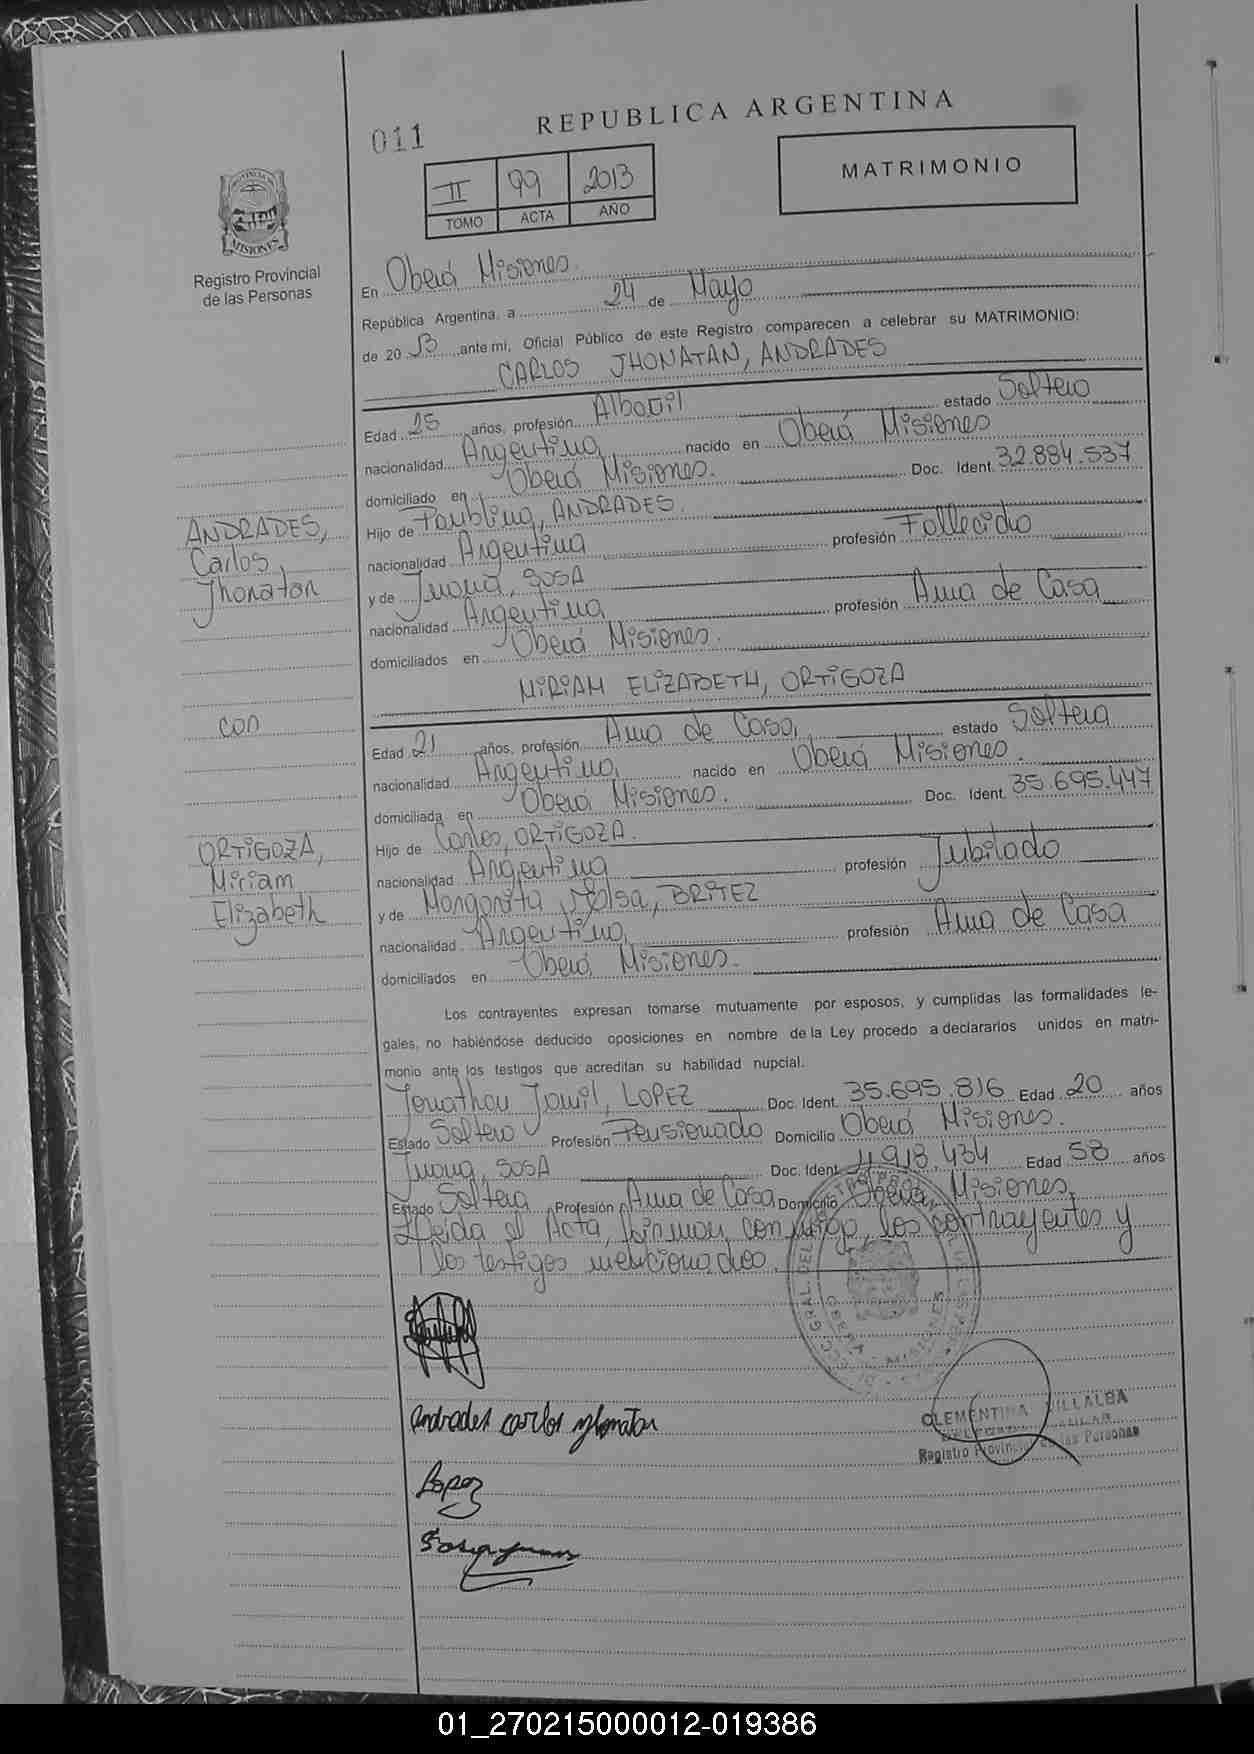 011
REPUBLICA ARGENTINA
II 99 2013
TOMO ACTA AÑO
MATRIMONIO
PROVINCIA
MISIONES
Registro Provincial
de las Personas
En Oberá Misiones.
República Argentina, a 24 de Mayo
de 20 13 ante mi, Oficial Público de este Registro comparecen a celebrar su MATRIMONIO:
CARLOS JHONATAN, ANDRADES
Edad 25 años, profesión Albañil estado Soltero
nacionalidad Argentina nacido en Oberá Misiones
domiciliado en Oberá Misiones. Doc. Ident. 32.884.537
Hijo de ANDRADES.
nacionalidad Argentina profesión Fallecido
y de Juana, SOSA
nacionalidad Argentina profesión Ama de Casa
domiciliados en Oberá Misiones.
ANDRADES,
Carlos
Jhonatan
MIRIAM ELIZABETH, ORTIGOZA
con
Edad 21 años, profesión Ama de Casa, estado Soltera
nacionalidad Argentina, nacido en Oberá Misiones.
domiciliada en Oberá Misiones. Doc. Ident. 35.695.447
Hijo de Carlos, ORTIGOZA.
nacionalidad Argentina profesión Jubilado
y de Margarita BRITEZ
nacionalidad Argentina, profesión Ama de Casa
domiciliados en Oberá Misiones.
ORTIGOZA,
Miriam
Elizabeth
Los contrayentes expresan tomarse mutuamente por esposos, y cumplidas las formalidades le-
gales, no habiéndose deducido oposiciones en nombre de la Ley procedo a declararlos unidos en matri-
monio ante los testigos que acreditan su habilidad nupcial.
Jonathan Jamil, LOPEZ Doc. Ident. 35.695.816 Edad 20 años
Estado Soltero Profesión Pensionado Domicilio Oberá Misiones.
Juana, SOSA Doc. Ident. 11.918.434 Edad 58 años
Estado Soltera Profesión Ama de Casa Domicilio Oberá, Misiones,
Leida el Acta, firman conmigo, los contrayentes y
los testigos mencionados.
OBERA - MISIONES
andrades carlos jhonatan
CLEMENTINA VILLALBA
Registro Provincial de las Personas
Lopez
Sosa Juana
01_270215000012-019386